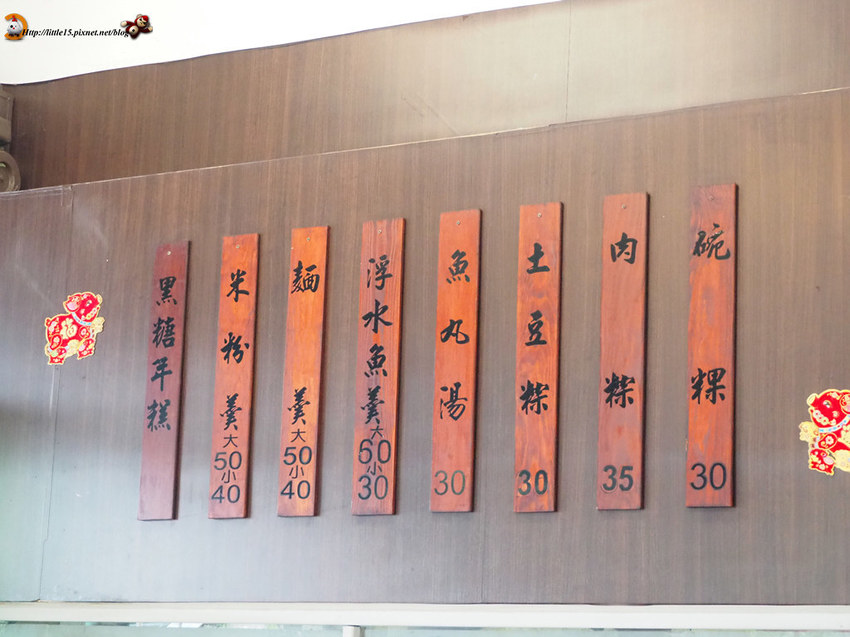 Http://little15.pixnet.net/blog
碗粿 30
肉粽 35
土豆粽 30
魚丸湯 30
浮水魚羹 大 60 小 30
麵羹 大 50 小 40
米粉羹 大 50 小 40
黑糖年糕